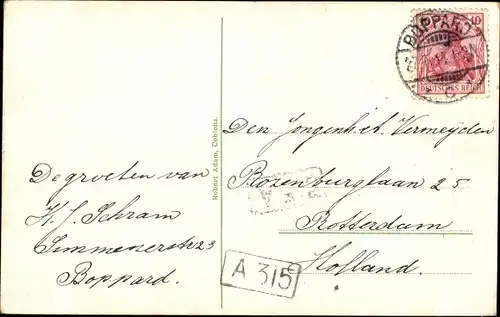 10
BOPPARD
DEUTSCHES REICH
Robert Adam, Coblenz.
De groeten van
H. J. Schram
Simmenerstr 23
Boppard.
Den Jongenh. et. Vermeyden
Rozenburglaan 25
Rotterdam
Holland.
A 315